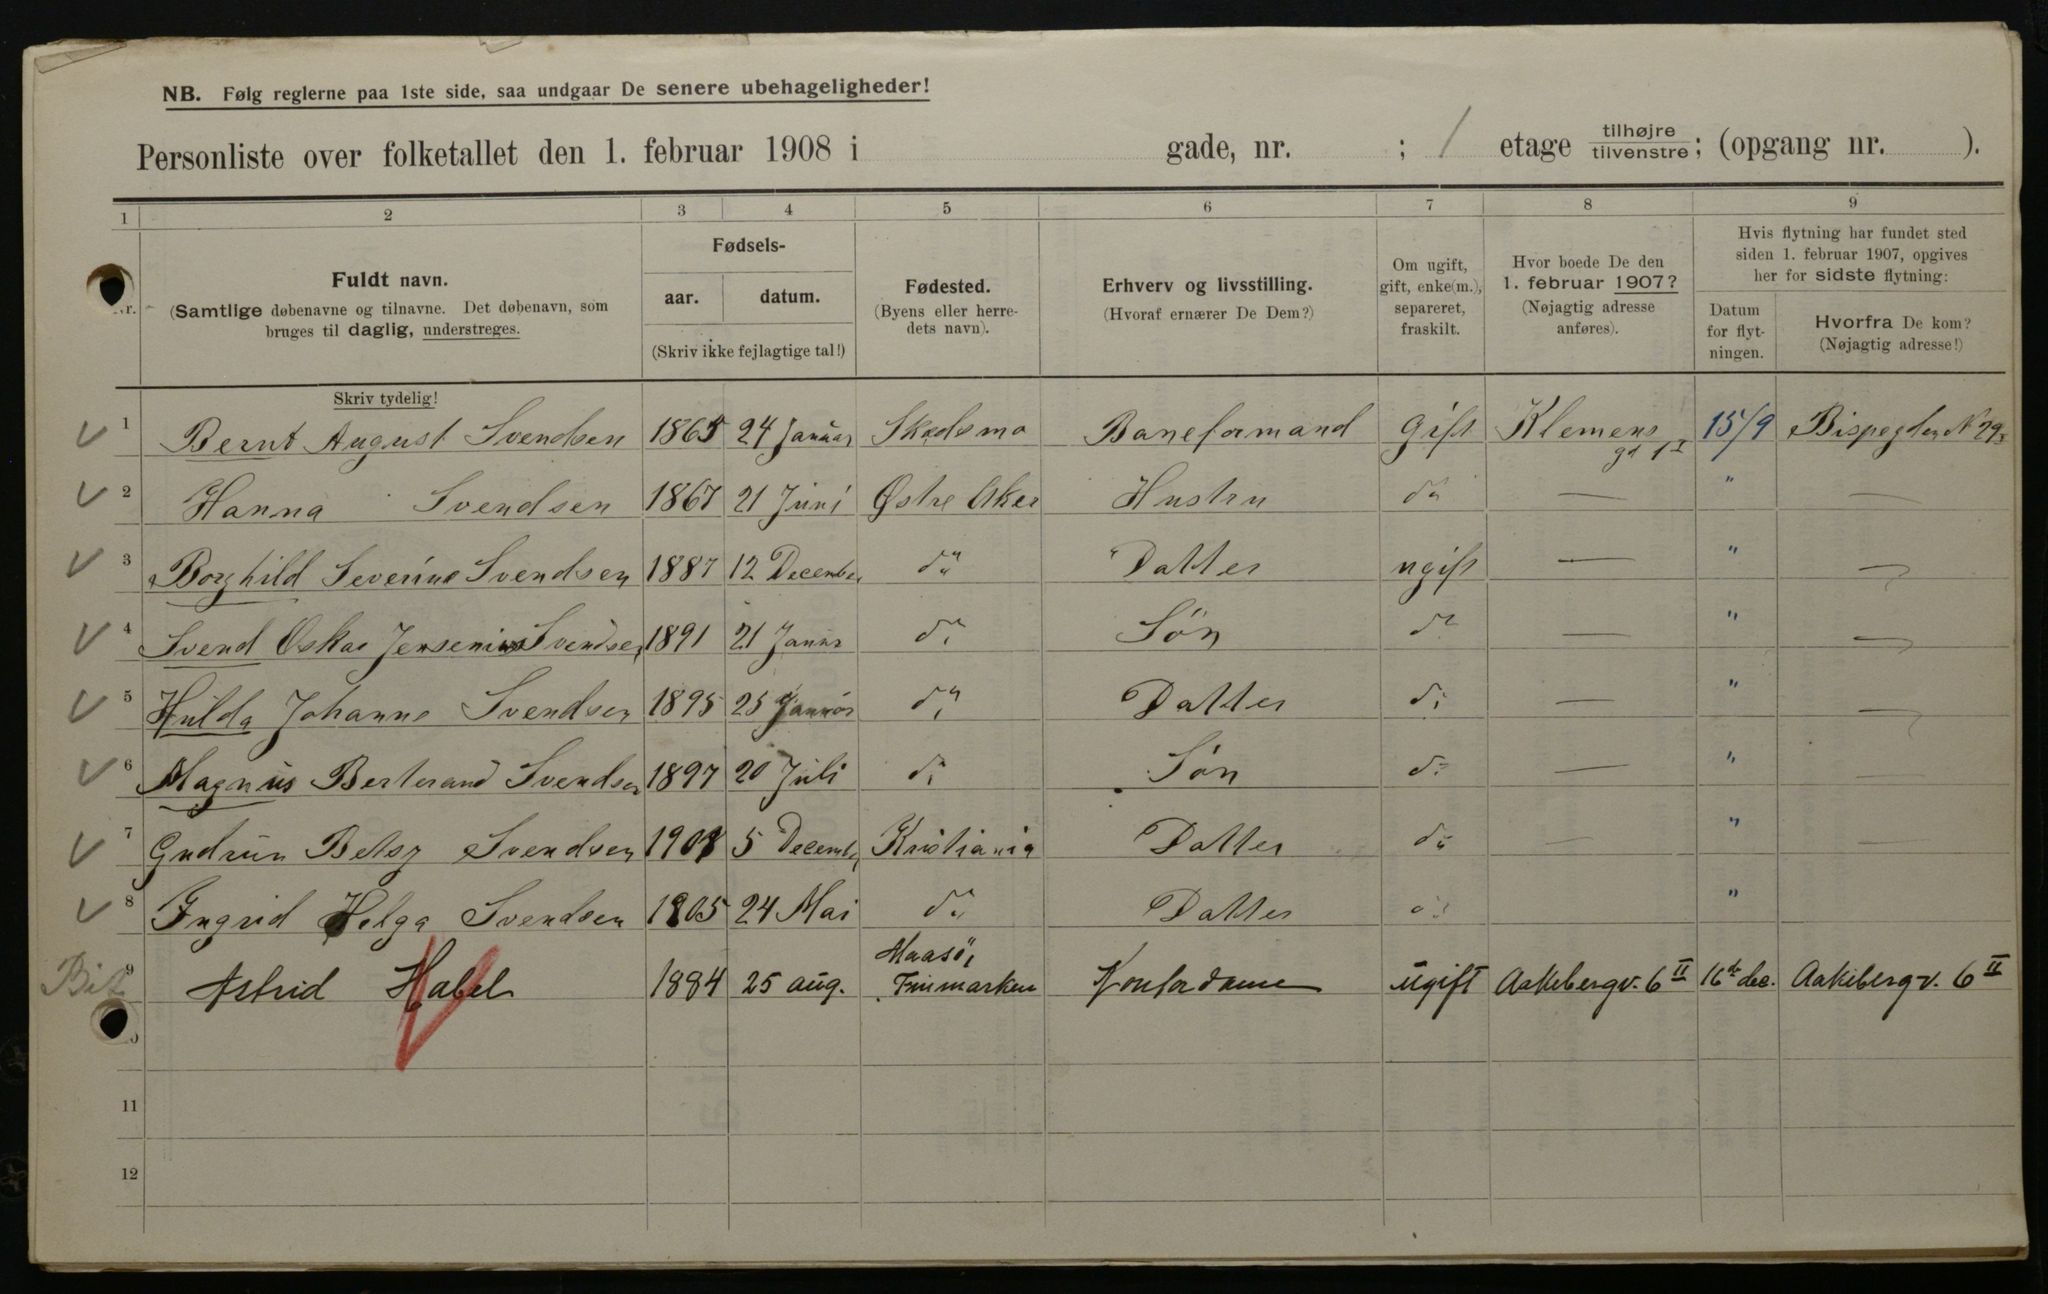 NB. Følg reglerne paa 1ste side, saa undgaar De senere ubehageligheder!
Personliste over folketallet den 1. februar 1908 i gade, nr. ; / etage tilhøjre tilvenstre; (opgang nr. ).
1 2 3 4 5 6 7 8 9
Nr.
Fuldt navn.
(Samtlige døbenavne og tilnavne. Det døbenavn, som
bruges til daglig, understreges.
Skriv tydelig!
Fødsels-
aar. datum.
(Skriv ikke fejlagtige tal!)
Fødested.
(Byens eller herre-
dets navn).
Erhverv og livsstilling.
(Hvoraf ernærer De Dem?)
Om ugift,
gift, enke(m.),
separeret,
fraskilt.
Hvor boede De den
1. februar 1907?
(Nøjagtig adresse
anføres).
Hvis flytning har fundet sted
siden 1. februar 1907, opgives
her for sidste flytning:
Datum
for flyt-
ningen.
Hvorfra De kom?
(Nøjagtig adresse!)
1 Bernt August Svendsen 1865 24 Januar Skedsmo Baneformand Gift Klemens gd 1 I 15/9 Bispegden N 29
2 Hanna Svendsen 1867 21 Juni Østre Aker Hustru do — " —
3 Borghild Severine Svendsen 1887 12 December do Datter ugift — " —
4 Svend Oskar Jensenius Svendsen 1891 21 Januar do Søn do — " —
5 Hulda Johanne Svendsen 1895 25 Januar do Datter do — " —
6 Magnus Berterand Svendsen 1897 20 Juli do Søn do — " —
7 Gudrun Betsy Svendsen 5 December Kristiania Datter do — " —
8 Ingrid Helga Svendsen 1905 24 Mai do Datter do "
9 Astrid Habel 1884 25 aug. Maasö, Finmarken Kontordame ugift Aakebergv. 6 II 16de dec. Aakebergv. 6 II
11
12